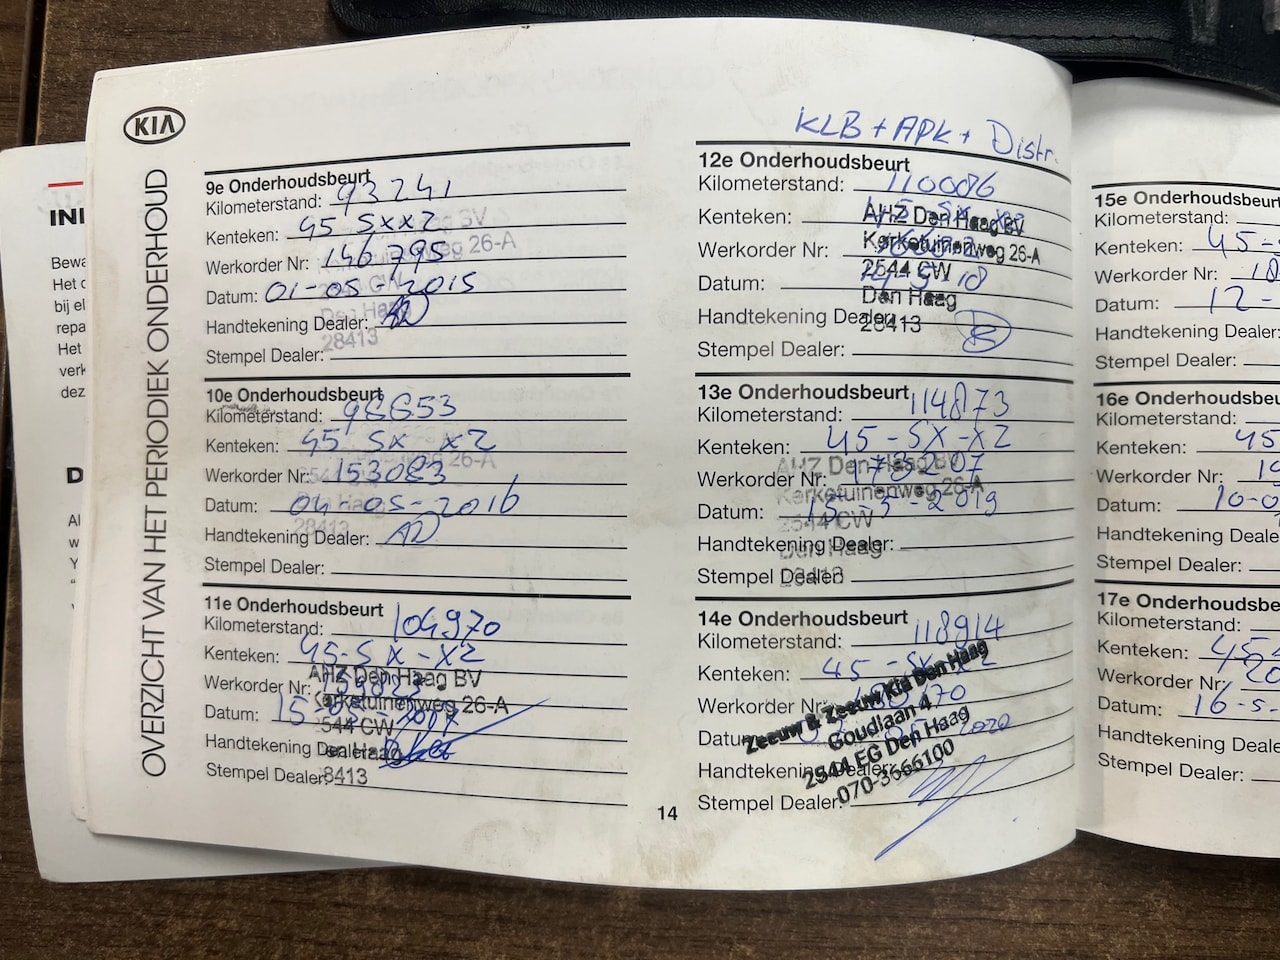 KIA
OVERZICHT VAN HET PERIODIEK ONDERHOUD
9e Onderhoudsbeurt
Kilometerstand: 93241
Kenteken: 45 SXXZ
Werkorder Nr: 146395
Datum: 01-05-2015
Handtekening Dealer:
Stempel Dealer:
BV
26-A
Den Haag
28413
10e Onderhoudsbeurt
Kilometerstand:
Kenteken: 45 SX XZ
Werkorder Nr: 153083
Datum: 04-05-2016
Handtekening Dealer:
Stempel Dealer:
26-A
28413
11e Onderhoudsbeurt
Kilometerstand: 104970
Kenteken: 45-SX-XZ
Werkorder Nr:
Datum: 15-05-
Handtekening Dealer:
Stempel Dealer:
AHZ Den Haag BV
Kerketuinenweg 26-A
544 CW
en Haag
8413
KLB + APK + Distr.
12e Onderhoudsbeurt
Kilometerstand: 110086
Kenteken:
Werkorder Nr:
Datum:
Handtekening Dealer:
Stempel Dealer:
AHZ Den Haag BV
Kerketuinenweg 26-A
2544 CW
Den Haag
28413
13e Onderhoudsbeurt
Kilometerstand: 114873
Kenteken: 45-SX-XZ
Werkorder Nr: 178207
Datum: 15-5-2019
Handtekening Dealer:
Stempel Dealer:
AHZ Den Haag BV
Kerketuinenweg 26-A
2544 CW
Den Haag
28413
14e Onderhoudsbeurt
Kilometerstand: 118914
Kenteken: 45-SX-XZ
Werkorder Nr:
Datum: 2020
Handtekening Dealer:
Stempel Dealer:
Zeeuw & Zeeuw Kia Den Haag
Goudlaan 4
2544 EG Den Haag
070-3666100
14
15e Onderhoudsbeurt
Kilometerstand:
Kenteken: 45-
Werkorder Nr: 18
Datum: 12-
Handtekening Dealer:
Stempel Dealer:
16e Onderhoudsbeu
Kilometerstand:
Kenteken: 45
Werkorder Nr: 19
Datum: 10-0
Handtekening Dealer
Stempel Dealer:
17e Onderhoudsbe
Kilometerstand:
Kenteken: 45
Werkorder Nr: 20
Datum: 16-5-
Handtekening Deale
Stempel Dealer:
INI
Bewa
Het o
bij el
repa
Het
verk
dez
D
Al
w
Y